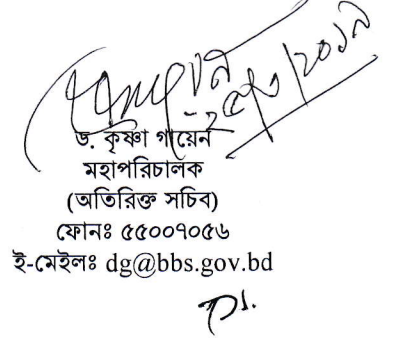 ড. কৃষ্ণা গায়েন
মহাপরিচালক
(অতিরিক্ত সচিব)
ফোনঃ ৫৫০০৭০৫৬
ই-মেইলঃ dg@bbs.gov.bd